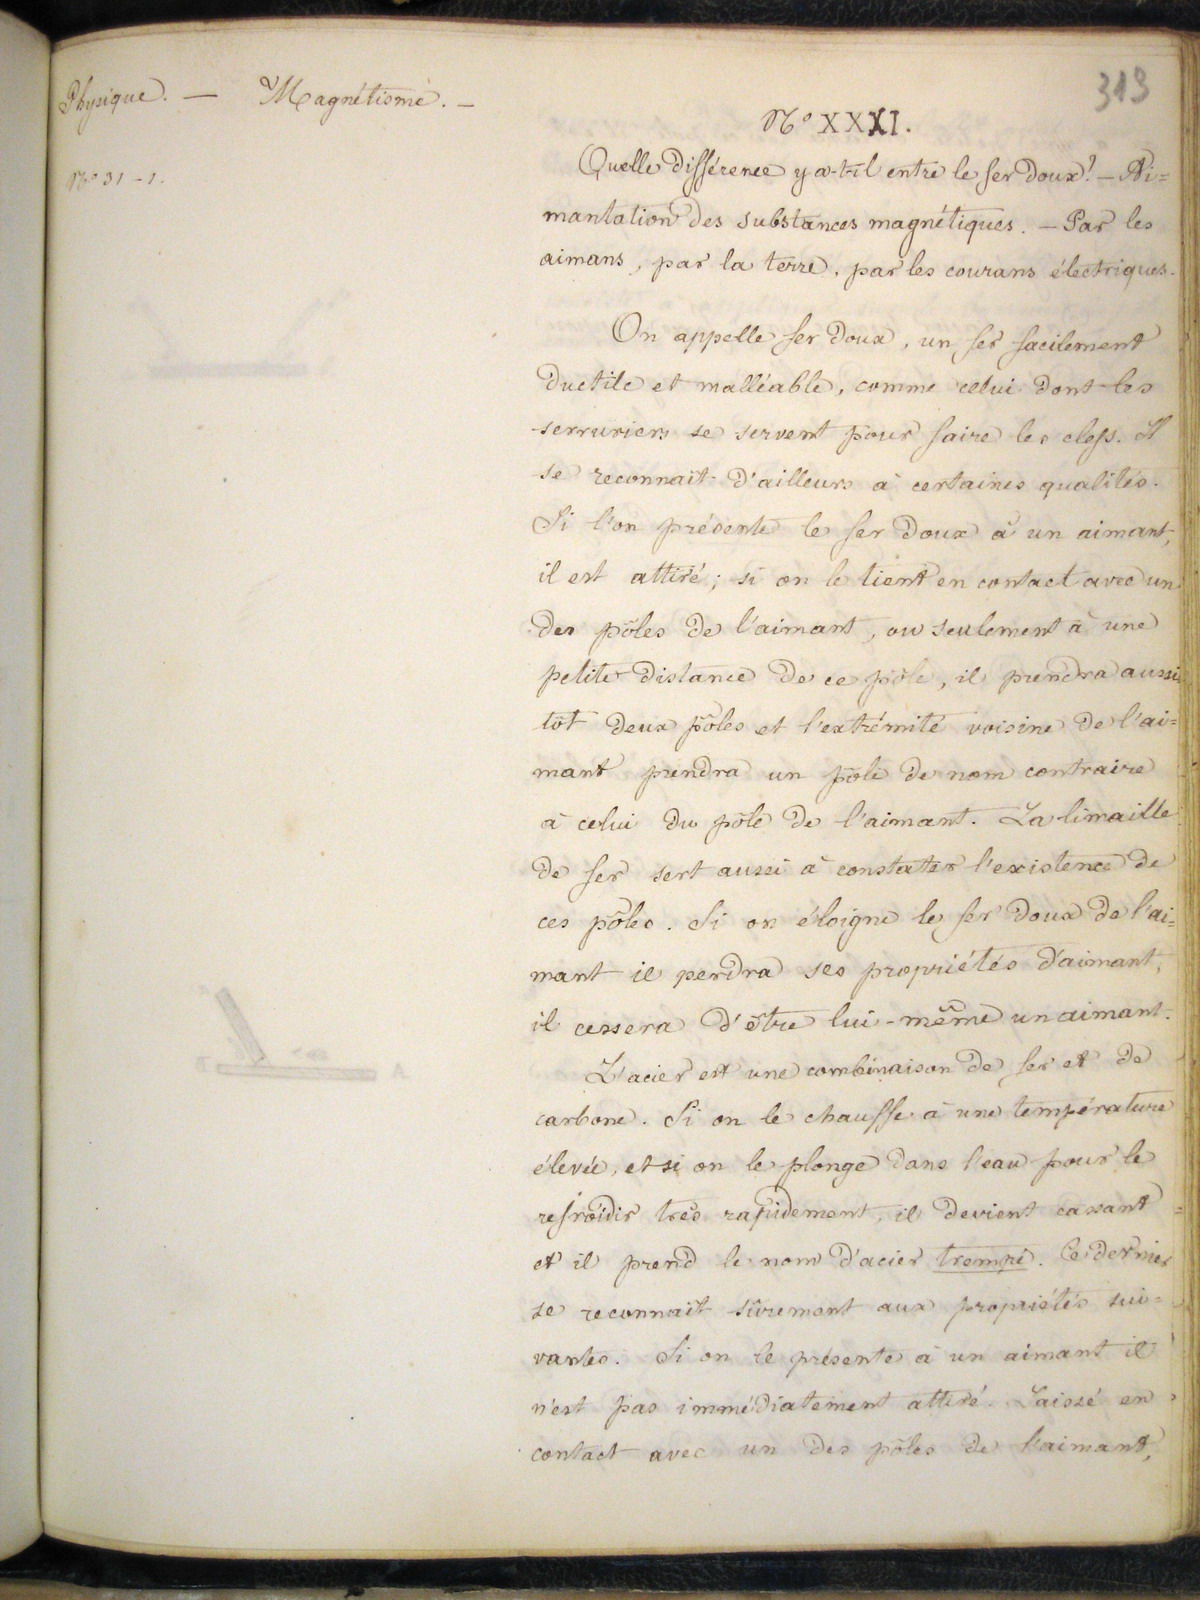 Physique. — Magnétisme. —
313
N° 31 - 1.
N° XXXI.
Quelle différence y a-t-il entre le fer doux? — Ai=
mantation des substances magnétiques. — Par les
aimans, par la terre, par les courans électriques.
On appelle fer doux, un fer facilement
ductile et malléable, comme celui dont les
serruriers se servent pour faire les clefs. Il
se reconnait d'ailleurs à certaines qualités.
Si l'on présente le fer doux à un aimant,
il est attiré; si on le tient en contact avec un
des pôles de l'aimant, ou seulement à une
petite distance de ce pôle, il prendra aussi
tôt deux pôles et l'extrémité voisine de l'ai=
mant prendra un pôle de nom contraire
à celui du pôle de l'aimant. La limaille
de fer sert aussi à constater l'existence de
ces pôles. Si on éloigne le fer doux de l'ai=
mant il perdra ses propriétés d'aimant,
il cessera d'être lui-même un aimant.
L'acier est une combinaison de fer et de
carbone. Si on le chauffe à une température
élevée, et si on le plonge dans l'eau pour le
refroidir très rapidement, il devient cassant
et il prend le nom d'acier trempé. Ce dernier
se reconnait sûrement aux propriétés sui=
vantes. Si on le présente à un aimant il
n'est pas immédiatement attiré. Laissé en
contact avec un des pôles de l'aimant,